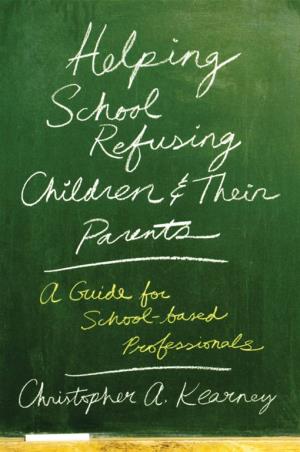 Helping
School
Refusing
Children & Their
Parents
A Guide for
School-based
Professionals
Christopher A. Kearney